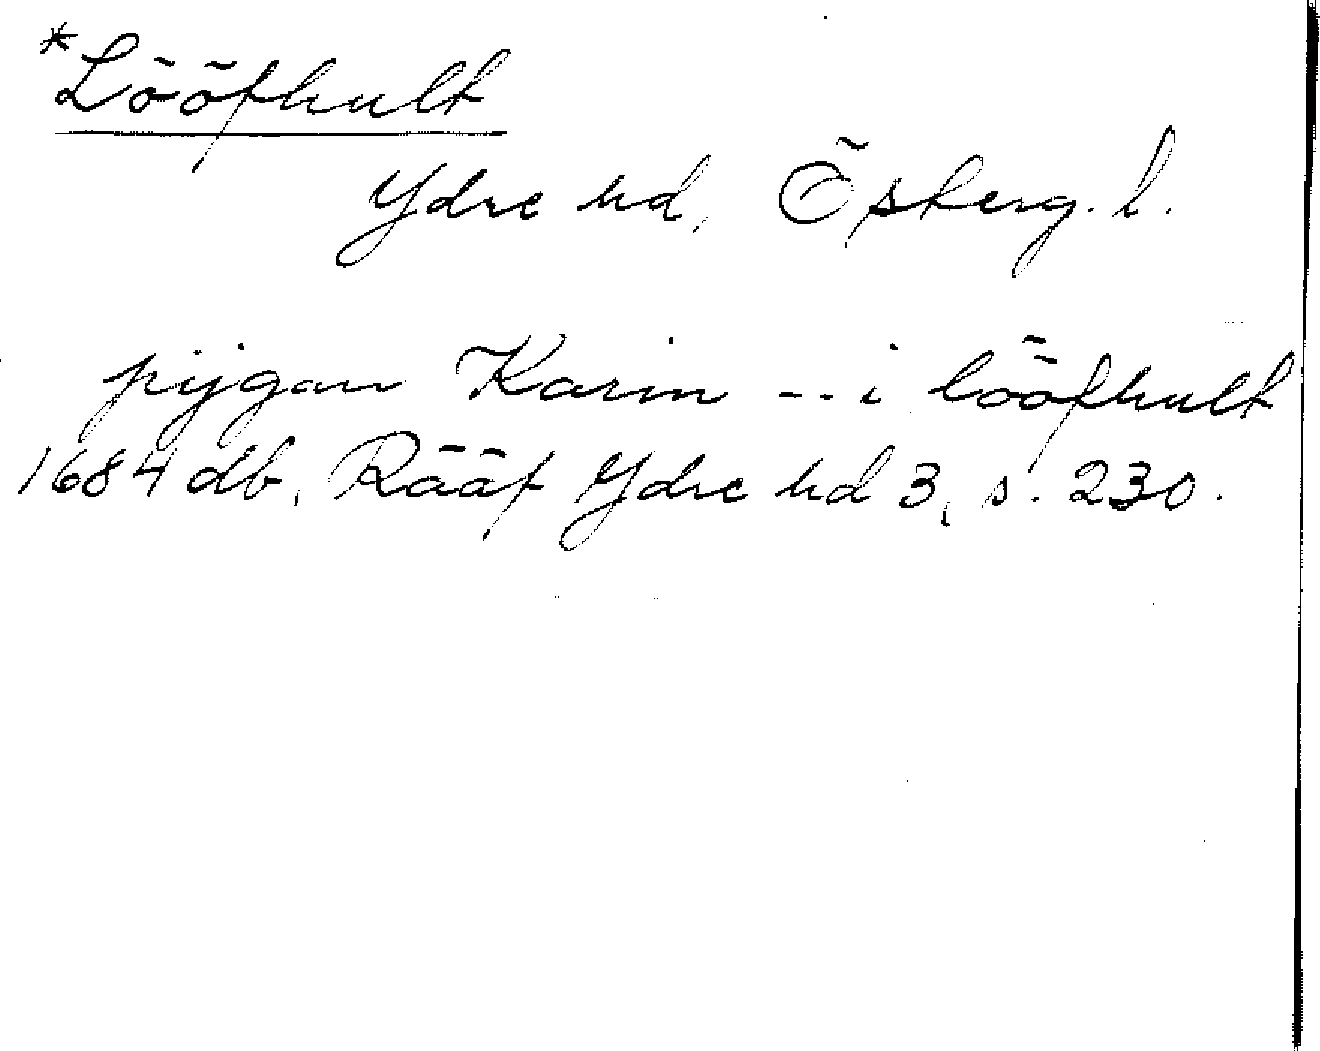 *Lööfhult
Ydre hd, Östergl. l.
pijgan Karin -- i lööfhult
1684 db, Rääf Ydre hd 3, s. 230.